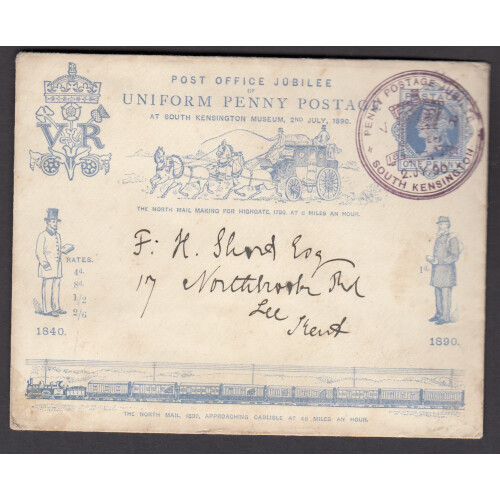 POST OFFICE JUBILEE
OF
UNIFORM PENNY POSTAGE
AT SOUTH KENSINGTON MUSEUM, 2ND JULY, 1890.
VR
POSTAGE
ONE PENNY
PENNY POSTAGE JUBILEE
2 JY 90
SOUTH KENSINGTON
THE NORTH MAIL MAKING FOR HIGHGATE, 1790, AT 8 MILES AN HOUR.
RATES.
4d.
8d.
1/2
2/6
1840.
F. H. Short Esq
17 Northbrook Rd
Lee
Kent
1d.
1890.
THE NORTH MAIL, 1890, APPROACHING CARLISLE AT 48 MILES AN HOUR.